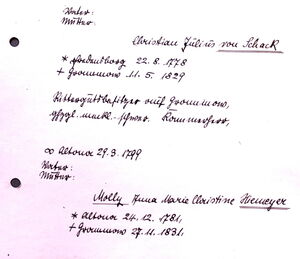 Vater:
Mutter:
Christian Julius von Schack
* Fredensborg 22. 8. 1778
+ Grammow 11. 5. 1829
Rittergutsbesitzer auf Grammow,
meckl.-schwer. Kammerherr,
∞ Altona 29. 3. 1799
Vater:
Mutter:
Molly Anna Marie Christine Niemeyer
* Altona 24. 12. 1781,
+ Grammow 27. 11. 1831.